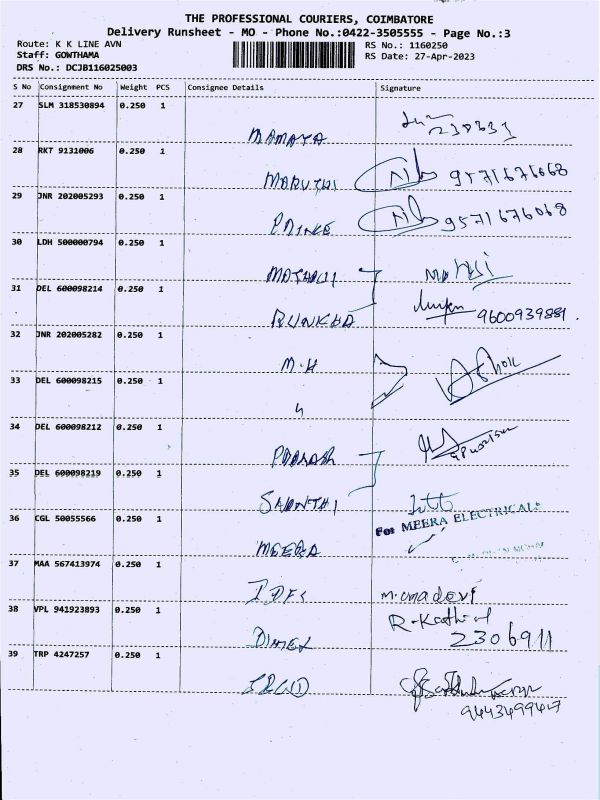 THE PROFESSIONAL COURIERS, COIMBATORE
Delivery Runsheet - MO - Phone No.:0422-3505555 - Page No.:3
Route: K K LINE AVN RS No.: 1160250
Staff: GOWTHAMA RS Date: 27-Apr-2023
DRS No.: DCJB116025003
S No Consignment No Weight PCS Consignee Details Signature
27 SLM 318530894 0.250 1
MAMATA
28 RKT 9131006 0.250 1
MARUTHI 9571676068
29 JNR 202005293 0.250 1
PRINCE 9571676068
30 LDH 500000794 0.250 1
31 DEL 600098214 0.250 1
9600939881.
32 JNR 202005282 0.250 1
M.H Ashok
33 DEL 600098215 0.250 1
34 DEL 600098212 0.250 1
PRAKASH
35 DEL 600098219 0.250 1
36 CGL 50055566 0.250 1
For MEERA ELECTRICALS
MEERA
37 MAA 567413974 0.250 1
M. Umadevi
38 VPL 941923893 0.250 1
2306911
39 TRP 4247257 0.250 1
9443499417